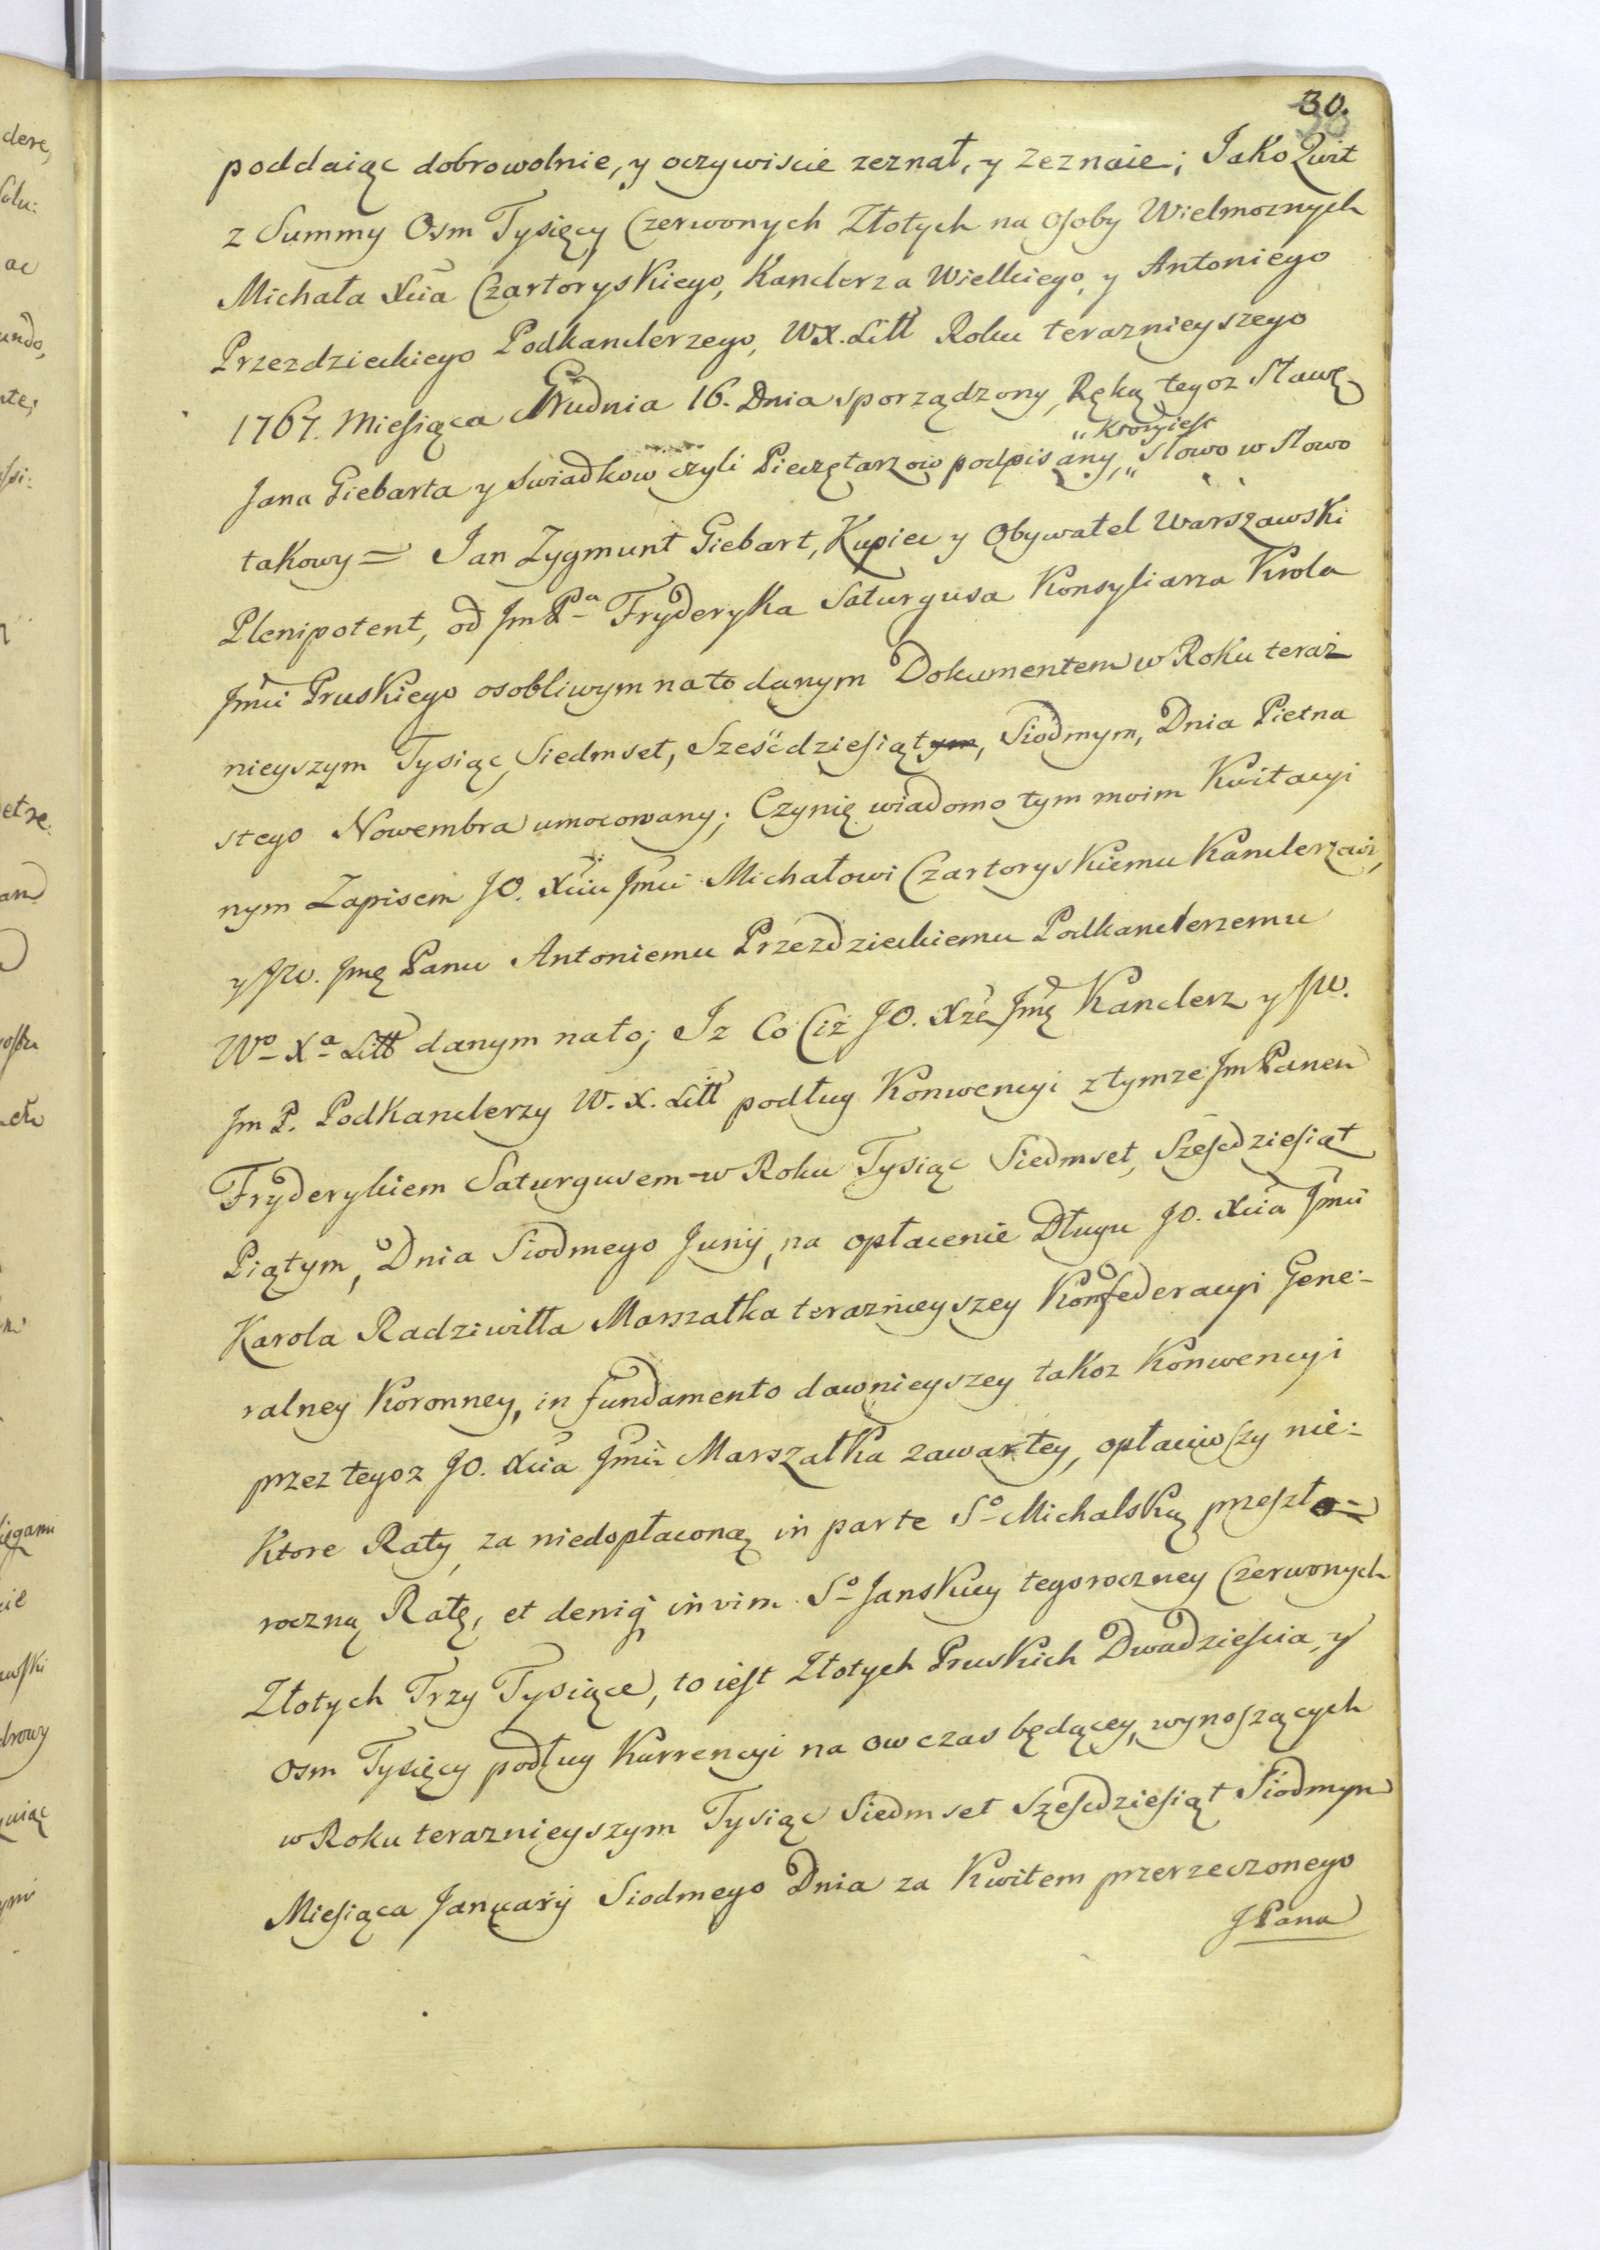 30.
poddaiąc dobrowolnie, y oczywiscie zeznał, y zeznaie; Jako Qwit
z Summy Osm Tysięcy Czerwonych Złotych na Osoby Wielmoznych
Michała Xcia Czartoryskiego, Kanclerza Wielkiego, y Antoniego
Przezdzieckiego Podkanclerzego, W.X.Litt Roku teraznieyszego
1767. Miesiąca Grudnia 16. Dnia sporządzony, Ręką tegoz Sławę
„ Ktory iest
Jana Giebarta y Swiadkow czyli Pieczętarzow podpisany, „ Słowo w Słowo
takowy = Jan Zygmunt Giebart, Kupiec y Obywatel Warszawski
Plenipotent, od Jm Pa Fryderyka Saturgusa Konsyliarza Krola
Jmci Pruskiego osobliwym na to danym Dokumentem w Roku teraz
nieyszym Tysiąc, Siedmset, Sześćdziesiątym, Siodmym, Dnia Pietna
stego Nowembra umocowany; Czynię wiadomo tym moim Kwitacyi
nym Zapisem JO. Xciu Jmci Michałowi Czartoryskiemu Kanclerzowi,
y JW. Jmę Panu Antoniemu Przezdzieckiemu Podkanclerzemu
Wo Xa Litt danym na to; Iz Co Ciż JO. Xże Jmę Kanclerz y JW.
Jm P. Podkanclerzy W. X. Litt podług Konwencyi z tymze Jm Panem
Fryderykiem Saturgusem w Roku Tysiąc Siedmset, Szescdziesiąt
Piątym, Dnia Siodmego Junij, na opłacenie Długu JO. Xcia Jmci
Karola Radziwiłła Marszałka teraznieyszey Konfederacyi Gene:
ralney Koronney, in fundamento dawnieyszey takoz Konwencyi
przez tegoz JO. Xcia Jmci Marszałka zawartey, opłaciwszy nie:
Ktore Raty, za niedopłaconą in parte So Michalską przeszło=
roczną Ratę, et deniq in vim So Janskiey tegoroczney Czerwonych
Złotych Trzy Tysiące, to iest Złotych Pruskich Dwadziescia, y
Osm Tysięcy podług Kurrencyi na ow czas będącey, wynoszących
w Roku teraznieyszym Tysiąc Siedmset Szescdziesiąt Siodmym
Miesiąca Januarij Siodmego Dnia za Kwitem przerzeczonego
JPana